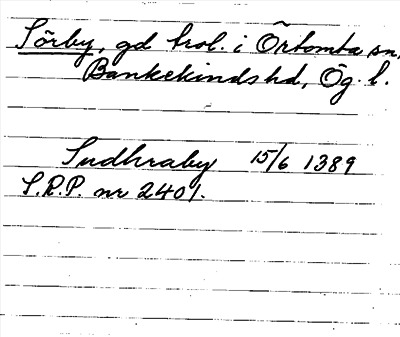 Sörby, gd trol. i Örtomta sn,
Bankekinds hd, Ög. l.
Sudhraby 15/6 1389
S.R.P. nr 2401.